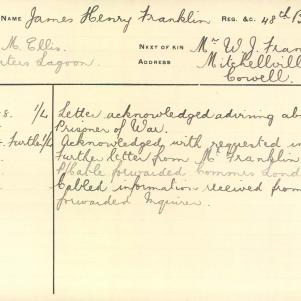 NAME James Henry Franklin REG. &C. 48th B
M. Ellis. NEXT OF KIN Mr W. J. Fran
ters Lagoon ADDRESS Mitchellvill
Cowell.
s. 1/4 Letter acknowledged advising abo
Prisoner of War.
Furtle 1/4 Acknowledged, with requested in
Further letter from Mr Franklin
P/Cable forwarded Commrs Lond
Cabled information received from
forwarded Inquirer.